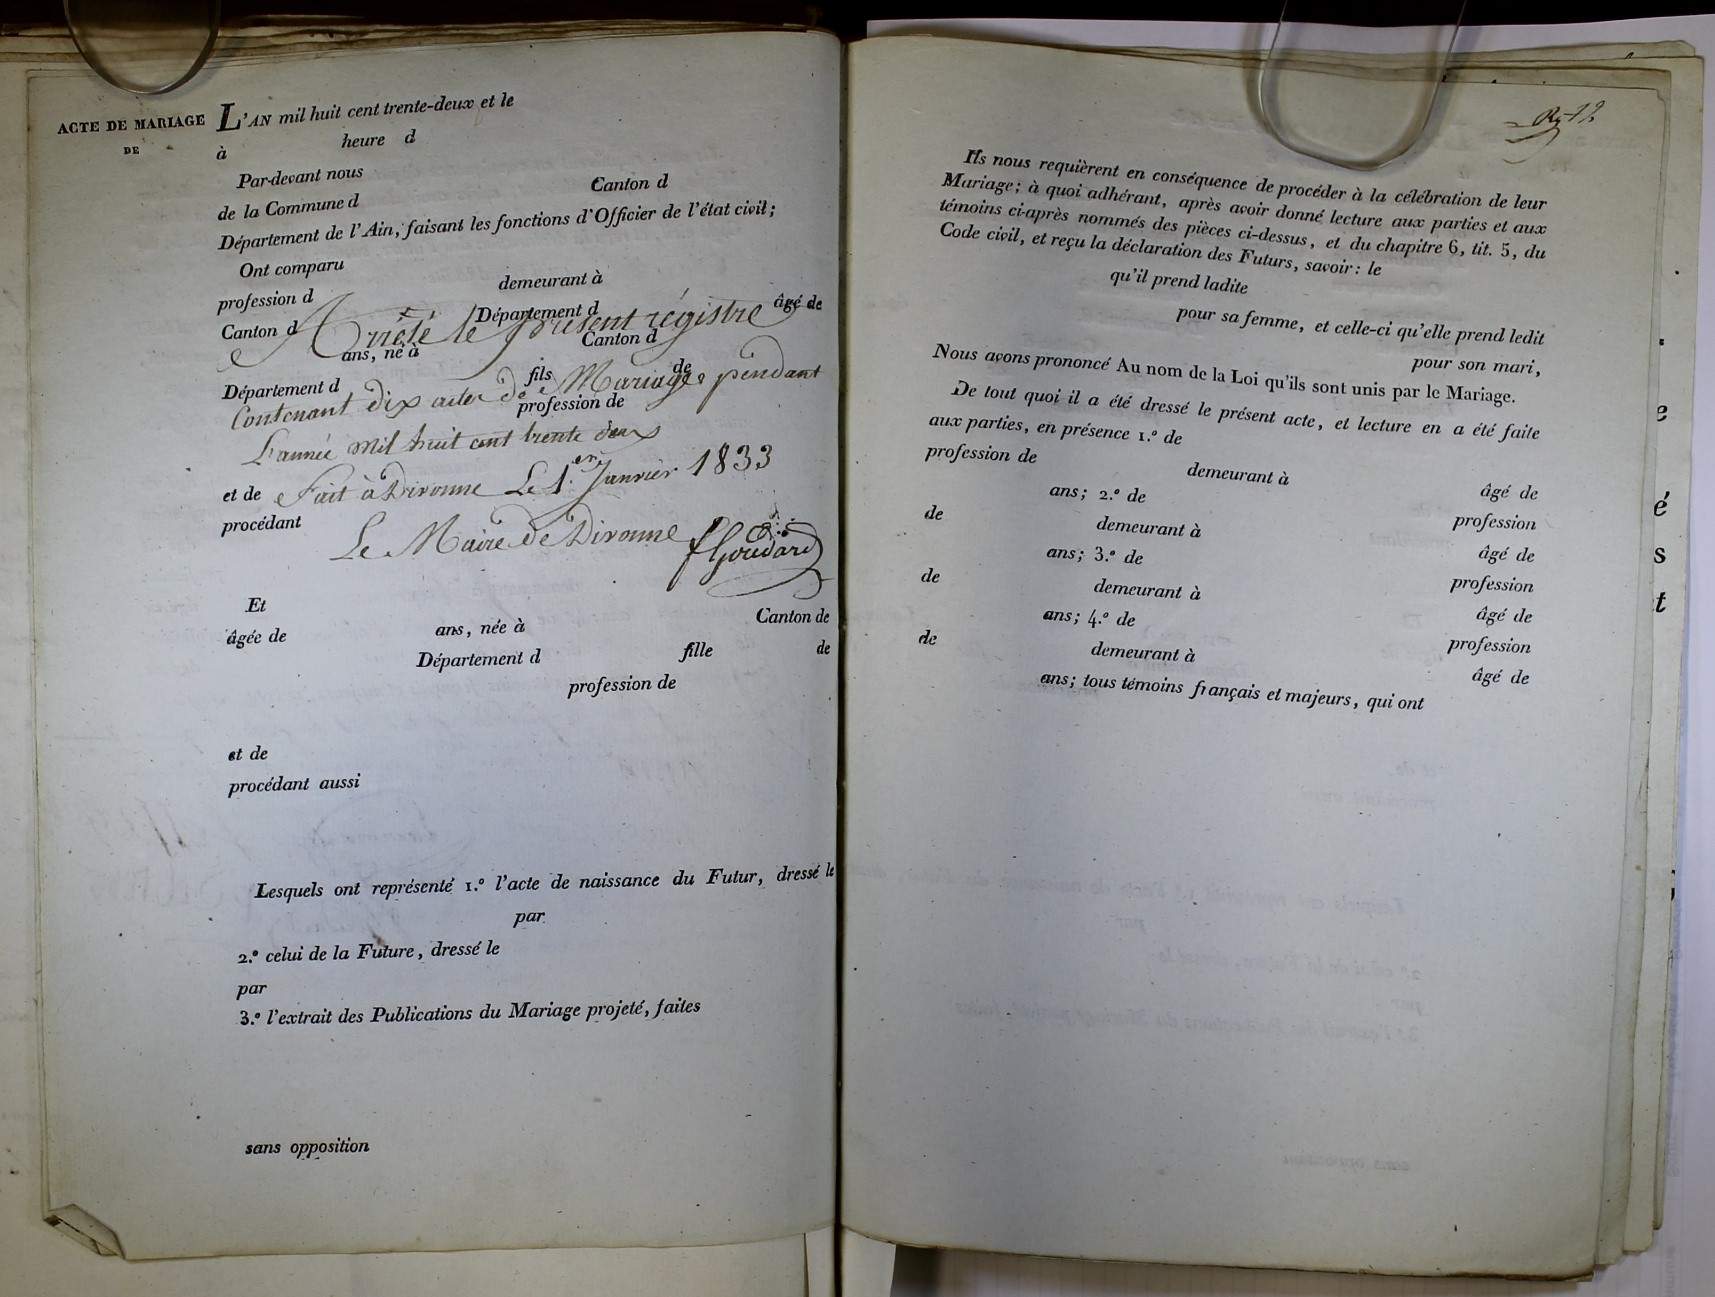 ACTE DE MARIAGE
DE
L'AN mil huit cent trente-deux et le
à heure d
Par-devant nous
de la Commune d Canton d
Département de l'Ain, faisant les fonctions d'Officier de l'état civil;
Ont comparu
profession d demeurant à
Canton d Département d âgé de
ans, né à Canton d
Département d fils de
profession de
et de
procédant
Arrêté le présent régistre
Contenant dix actes de Mariages pendant
L'année mil huit cent trente deux
Fait à Divonne Le 1.er Janvier 1833
Le Maire de Divonne
Et
âgée de ans, née à Canton de
Département d fille de
profession de
et de
procédant aussi
Lesquels ont représenté 1.º l'acte de naissance du Futur, dressé le
par
2.º celui de la Future, dressé le
par
3.º l'extrait des Publications du Mariage projeté, faites
sans opposition
Ils nous requièrent en conséquence de procéder à la célébration de leur
Mariage; à quoi adhérant, après avoir donné lecture aux parties et aux
témoins ci-après nommés des pièces ci-dessus, et du chapitre 6, tit. 5, du
Code civil, et reçu la déclaration des Futurs, savoir: le
qu'il prend ladite
pour sa femme, et celle-ci qu'elle prend ledit
pour son mari,
Nous avons prononcé Au nom de la Loi qu'ils sont unis par le Mariage.
De tout quoi il a été dressé le présent acte, et lecture en a été faite
aux parties, en présence 1.º de
profession de demeurant à âgé de
ans; 2.º de profession
de demeurant à âgé de
ans; 3.º de profession
de demeurant à âgé de
ans; 4.º de profession
de demeurant à âgé de
ans; tous témoins français et majeurs, qui ont
e
é
s
t